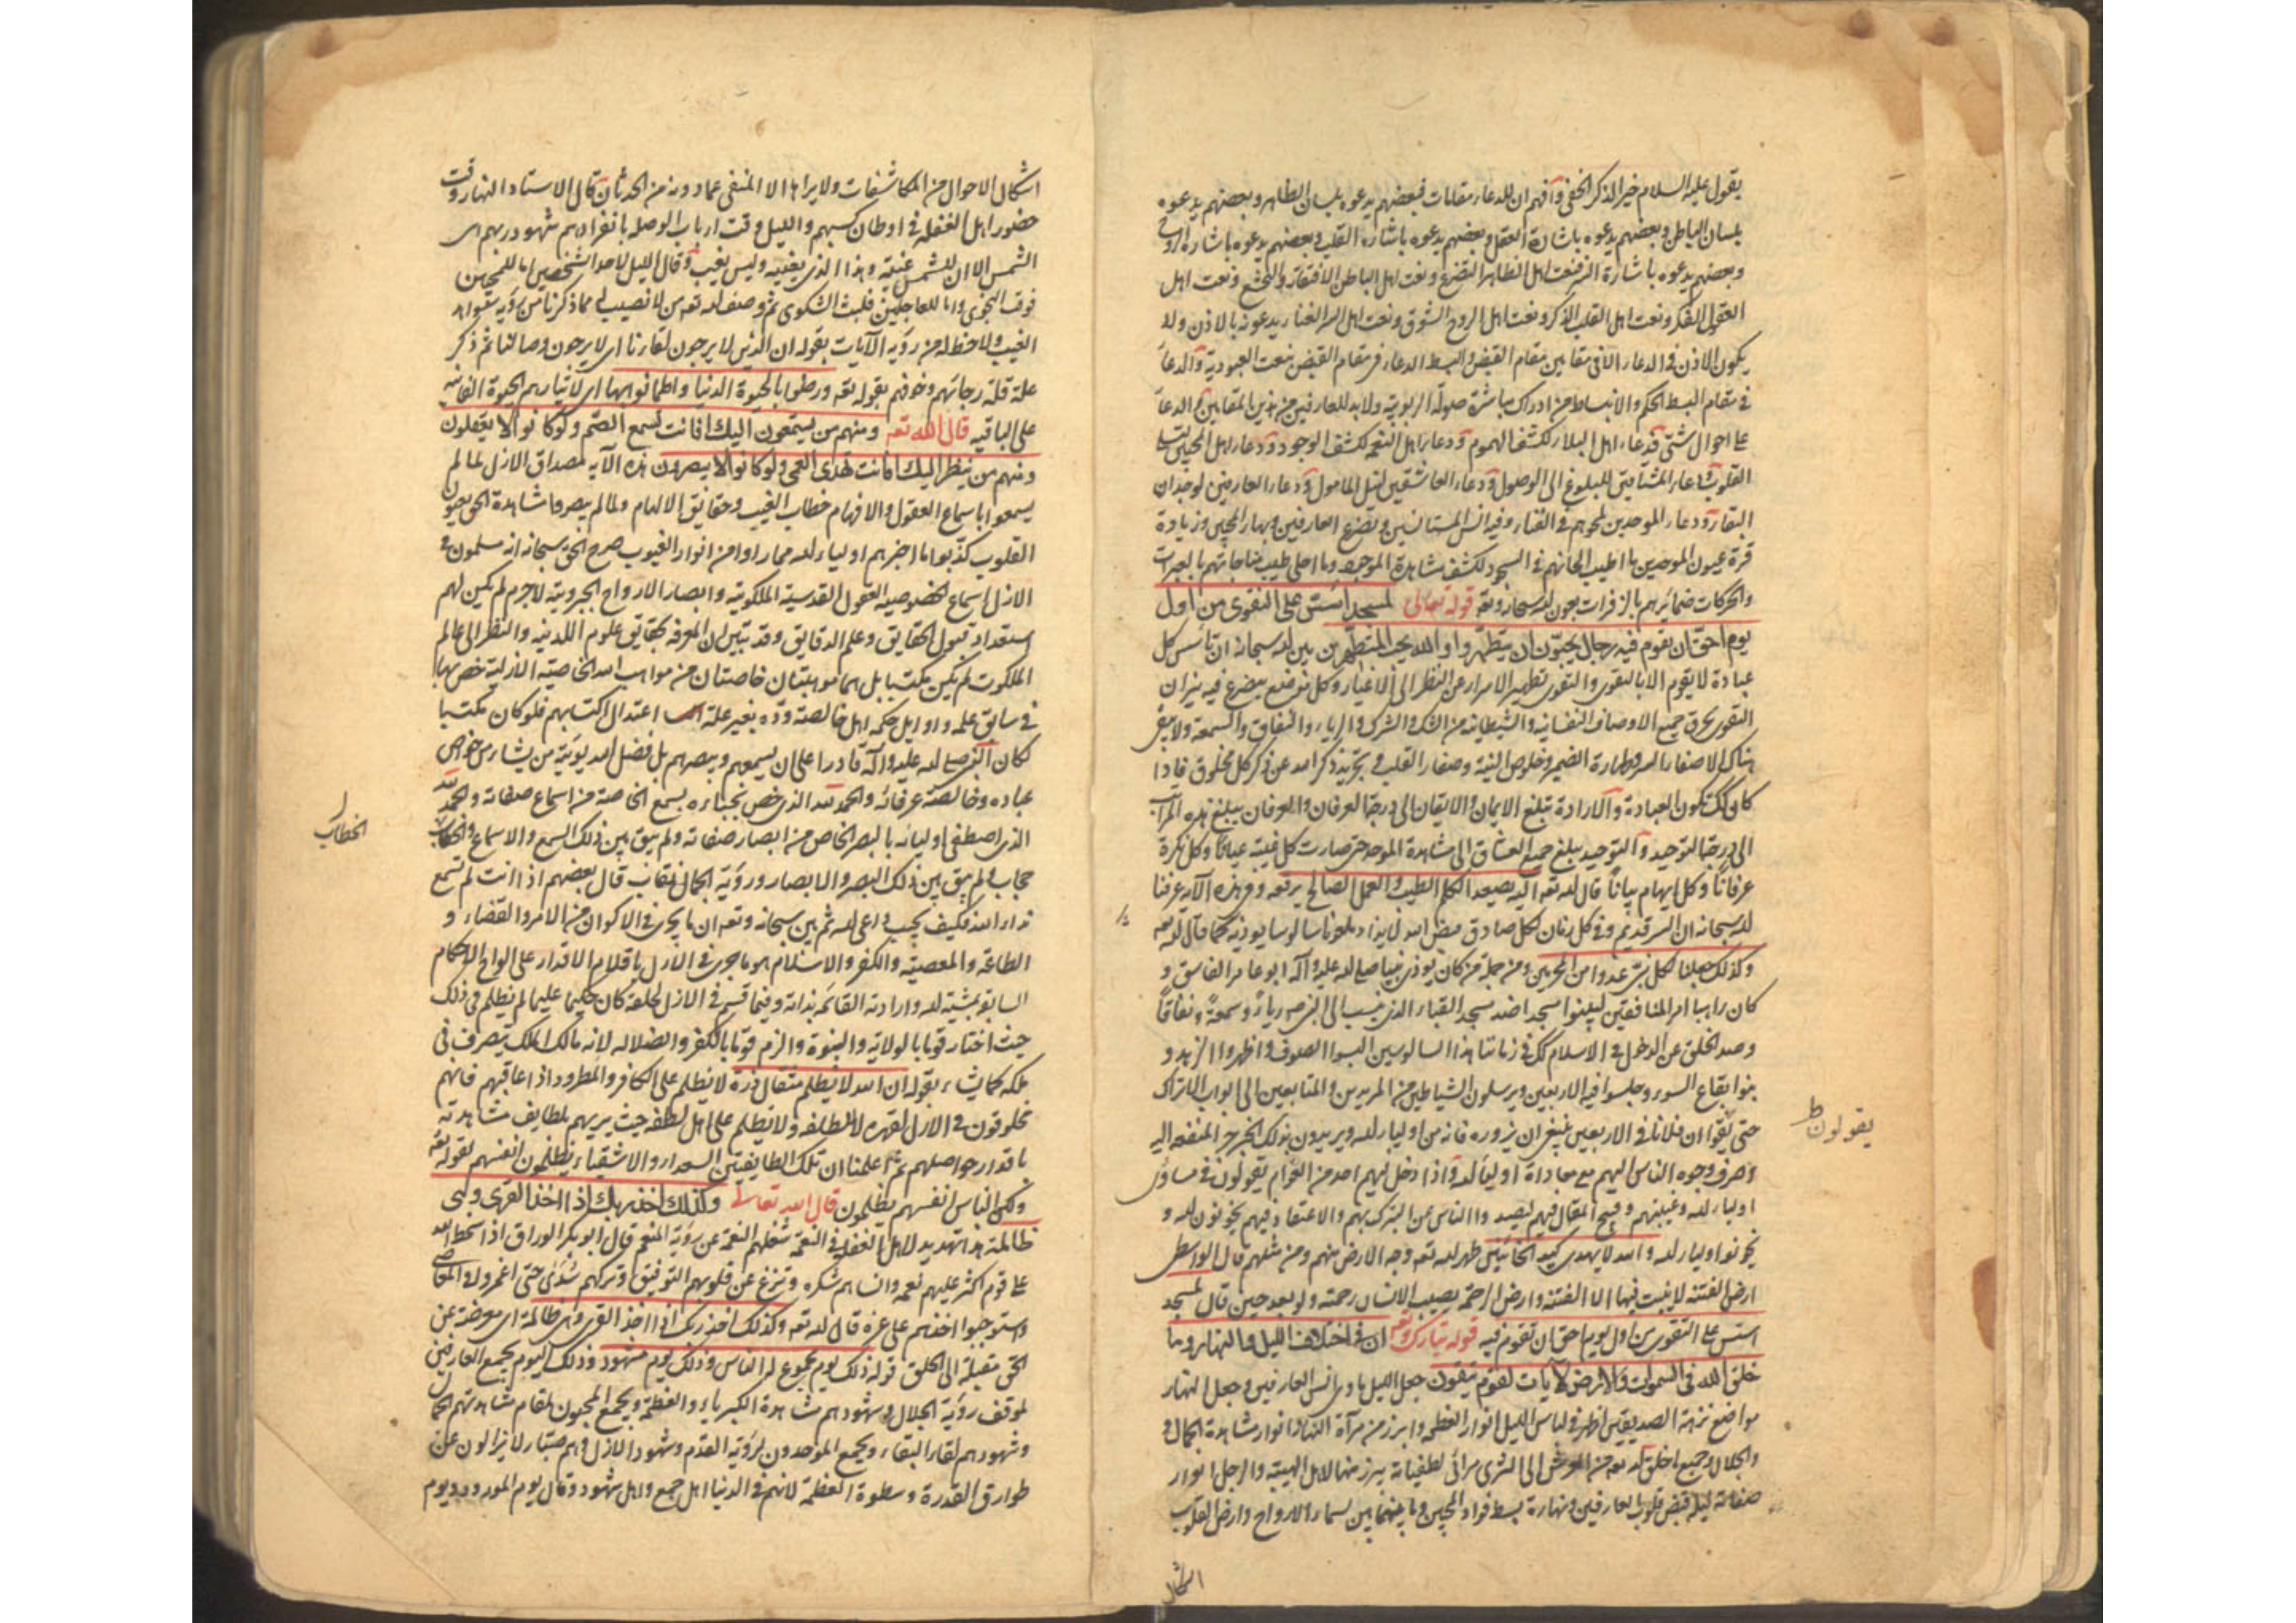 يقول عليه السلام خير الذكر الخفى وافهم ان للدعاء مقامات فبعضهم يدعوه بلسان الظاهر وبعضهم يدعوه
بلسان الباطن وبعضهم يدعوه باشارة العقل وبعضهم يدعوه باشارة القلب وبعضهم يدعوه باشارة الروح
وبعضهم يدعوه باشارة السر فنعت اهل الظاهر التضرع ونعت اهل الباطن الافتقار والتخشع ونعت اهل
العقول الفكر ونعت اهل القلب الذكر ونعت اهل الروح الشوق ونعت اهل السر الفناء يدعونه بالاذن ولا
يكون الاذن فى الدعاء الا فى مقامين مقام القبض والبسط الدعاء فى مقام القبض بنعت العبودية والدعاء
فى مقام البسط الحكم والانبساط من ادراك مباشرة صولة الربوبية ولابد للعارفين من هذين المقامين ثم الدعاء
على احوال شتى فدعاء اهل البلاء لكشف الهموم ودعاء اهل النعمه لكشف الوجود ودعاء اهل المحبين
القلوب دعاء المشتاقين للبلوغ الى الوصول ودعاء العاشقين لنيل المامول ودعاء العارفين لوجدان
البقاء ودعاء الموحدين لمحوهم فى الفناء وفيه انس المستانسين وتضرع العارفين وبهاء المحبين وزيادة
قرة عيون الموحدين ما اطيب الحانهم فى السجود لكشف مشاهدة الموجود وما احلى طيب مناجاتهم بالعبرات
والحركات ضمائرهم بالزفرات بعون الله سبحانه وتعه قوله تعالى لمسجد اسّس على التقوى من اول
يوم احقّ ان تقوم فيه رجال يحبّون ان يتطهّروا والله يحب المتطهرين بين الله سبحانه ان تاسيس كل
عبادة لا يقوم الا بالتقوى والتقوى تطهير الاسرار عن النظر الى الاغيار وكل موضع يوضع فيه نيران
التقوى يحرق جميع الاوصاف النفسانيه والشيطانيه من الشك والشرك والرياء والنفاق والسمعة ولا يبقى
هناك الا صفاء السر وطهارة الضمير وخلوص النية وصفاء القلب فى تجريد ذكر الله عن ذكر كل مخلوق فاذا
كان كك تكون العبادة والارادة تبلغ الايمان والايقان الى درجة العرفان والعرفان يبلغ هذه المراتب
الى درجة التوحيد والتوحيد يبلغ جميع العشاق الى مشاهدة الموحد حتى صارت كل غيبة عيانا وكل نكرة
عرفانا وكل ايهام بيانا قال الله تعه اليه يصعد الكلم الطيب والعمل الصالح يرفعه وفى هذه الآيه عرفنا
الله سبحانه ان السر قديم وفى كل زمان لكل صادق
وكذلك جعلنا لكل نبىّ عدوا من المجرمين ومن جملة من كان يوذى نبينا صلى الله عليه وآله ابو عامر الفاسق و
كان راهبا امر المنافقين ليبنوا مسجدا ضد مسجد القباء الذى ينسب الى النبى رياءً وسمعةً ونفاقًا
وصد الخلق عن الدخول فى الاسلام كك فى زماننا هذا السالوسين البسوا الصوف واظهروا الزهد و
بنوا بقاع السوء وجلسوا فيه الاربعين ويرسلون الشياطين من المريدين والمتابعين الى ابواب الاتراك
حتى يقولوا ان فلانا فى الاربعين ينبغى ان نزوره فانه من اولياء الله ويريدون بذلك جر المنفعة اليه
وصرف وجوه الناس اليهم مع معاداة اولياء الله واذا دخل اليهم احد من العوام يقولون فى مساوى
اولياء الله وغيبتهم وقبح المقال فيهم ليصيدوا الناس عن التبرك بهم والاعتقاد فيهم يخونون الله و
يخونوا اولياء الله والله لا يهدى كيد الخائنين طهر الله تعه وجه الارض منهم ومن مثلهم قال الواسطى
ارض الفتنه لا ينبت فيها الا الفتنه وارض الرحمة يصيب الانسان رحمته ولو بعد حين قال لمسجد
اسّس على التقوى من اول يوم احق ان تقوم فيه قوله تبارك وتعه ان فى اختلاف الليل والنهار وما
خلق الله فى السموات والارض لآيات لقوم يتقون جعل الليل ماوى انس العارفين وجعل النهار
مواضع نزهة الصديقين اظهر فى لباس الليل انوار العظمه وابرز من مرآة النهار انوار مشاهدة الجمال
والجلال وجميع ما خلق الله تعه من العرش الى الثرى مرائى لطفياته يبرز منها لاهل الهيبة والاجلال انوار
صفاته ليله قبض قلوب العارفين ونهاره بسط فواد المحبين وما بينهما بين سماء الارواح وارض القلوب
يقولون ط
اشكال
اشكال الاحوال من المكاشفات ولا يراها الا المتقى عما دونه من الحدثان قال الاستاد النهار وقت
حضور اهل الغفله فى اوطان كسبهم والليل وقت ارباب الوصله بانفرادهم شهود ربهم
الشمس الا ان للشمس غيبة وهذا الذى يغنيه وليس يغيب وقال الليل لاحد الشخصين اما للمحبين
فوقت النجوى واما للعاصين فلبث الشكوى ثم وصف الله تعه من لا نصيب له مما ذكرنا من رؤية شواهد
الغيب ولا حظ له من رؤيه الآيات بقوله ان الذين لا يرجون لقاءنا اى لا يرجون وصالنا ثم ذكر
علة قلة رجائهم وخوفهم بقوله تعه ورضوا بالحيوة الدنيا واطمانوا بها اى لا تيارهم الحيوة الفانيه
على الباقيه قال الله تعه ومنهم من يستمعون اليك افانت تسمع الصّم ولوكانوا لا يعقلون
ومنهم من ينظر اليك افانت تهدى العمى ولوكانوا لا يبصرون هذه الآيه لمصداق الازل لما لم
يسمعوا باسماع العقول والافهام خطاب الغيب وحقايق الالهام ولما لم يبصروا مشاهدة الحق بعيون
القلوب كذّبوا ما اخبرهم اولياء الله مما راوا من انوار الغيوب صرح الحق سبحانه انه مسلمون فى
الازل اسماع الخصوصيه العقول القدسية الملكوتية وابصار الارواح الجبروتية لاجرم لم يكن لهم
استعداد قبول الحقايق وعلم الدقايق وقد تبين ان المعرفه بحقايق علوم اللدنيه والنظر الى عالم
الملكوت لم يكن مكتسبا بل هما موهبتان خاصتان من مواهب الله الخاصية الازلية خص بها
فى سابق علمه واوايل حكمه اهل خالصته ووده بغير علة اعتدال اكتسابهم فلو كان مكتسبا
لكان النبى صلى الله عليه وآله قادرا على ان يسمعهم ويبصرهم بل فضل الله يؤتيه من يشاء من خواص
عباده وخالصة عرفائه والحمد لله الذى خص نجباءه بسمع الخاصة من اسماع صفاته والحمد لله
الذى اصطفى اوليائه بالبصر الخاص من ابصار صفاته ولم يبق بين ذلك السمع والاسماع فى الخطاب
حجاب ولم يبق بين ذلك البصر والابصار ورؤية الجمال نقاب قال بعضهم اذا انت لم تسمع
نداء الله فكيف يجيب داعى الله ثم بين سبحانه وتعه ان ما يجرى فى الاكوان من الامر والقضاء و
الطاعة والمعصية والكفر والاسلام هو ما جرى فى الازل باقلام الاقدار على الواح الاحكام
السابقه بمشية الله وارادته القائمه بذاته وفيما قسم فى الازل لخلقه كان حكيما عليما لم يظلم فى ذلك
حيث اختار قوما بالولاية والنبوة والزم قوما بالكفر والضلاله لانه مالك الملك يتصرف فى
ملكه كما يشاء بقوله ان الله لا يظلم مثقال ذرة لا يظلم على الكافر والمطرود اذا عاقبهم فانهم
مخلوقون فى الازل لقهره لا للطفه ولا يظلم على اهل لطفه حيث يريهم لطايف مشاهدته
باقدار حواصلهم ثم اعلمنا ان تلك الطايفتين السعداء والاشقياء يظلمون انفسهم بقوله تعه
ولكن الناس انفسهم يظلمون قال الله تعالى وكذلك اخذ ربك اذا اخذ القرى وهى
ظالمة هذا تهديد لاهل الغفلة فى النعمة شغلهم النعمة عن رؤية المنعم قال ابو بكر الوراق اذا سخط الله
على قوم اكثر عليهم نعمه وانساهم شكره ونزع عن قلوبهم التوفيق وتركهم سُدًى حتى اغمروا فى المعاصى
واستوجبوا اخذهم على غرة قال الله تعه وكذلك اخذ ربك اذا اخذ القرى وهى ظالمة اى معرضة عن
الحق مقبلة الى الخلق قوله ذلك يوم مجموع له الناس وذلك يوم مشهود وذلك اليوم يجمع العارفين
لموقف رؤية الجلال وشهودهم مشاهدة الكبرياء والعظمة ويجمع المحبون لمقام مشاهدتهم الجمال
وشهودهم لقاء البقاء ويجمع الموحدون لرؤية القدم وشهود الازل وهم صبّار لا يزالون عن
طوارق القدرة وسطوة العظمة لانهم فى الدنيا اهل جمع واهل شهود وقال يوم المورود ويوم
الخطاب